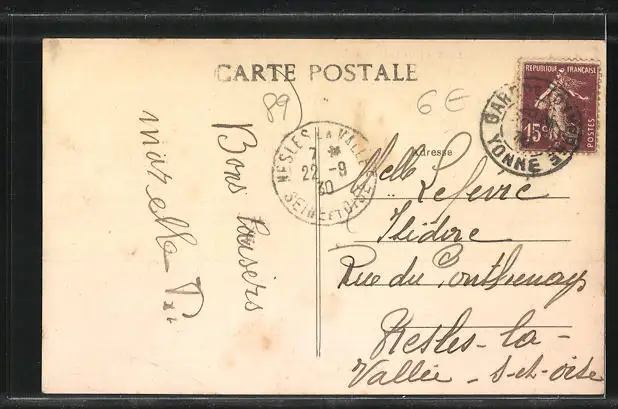 CARTE POSTALE
89
6€
Adresse
REPUBLIQUE FRANÇAISE
15c
POSTES
YONNE
NESLES LA VALLÉE
7 *
22 -9
30
SEINE ET OISE
Bons baisers
Melle Lefevre
Isidore
Rue du
Nesles-la-
Vallée - S-et-oise